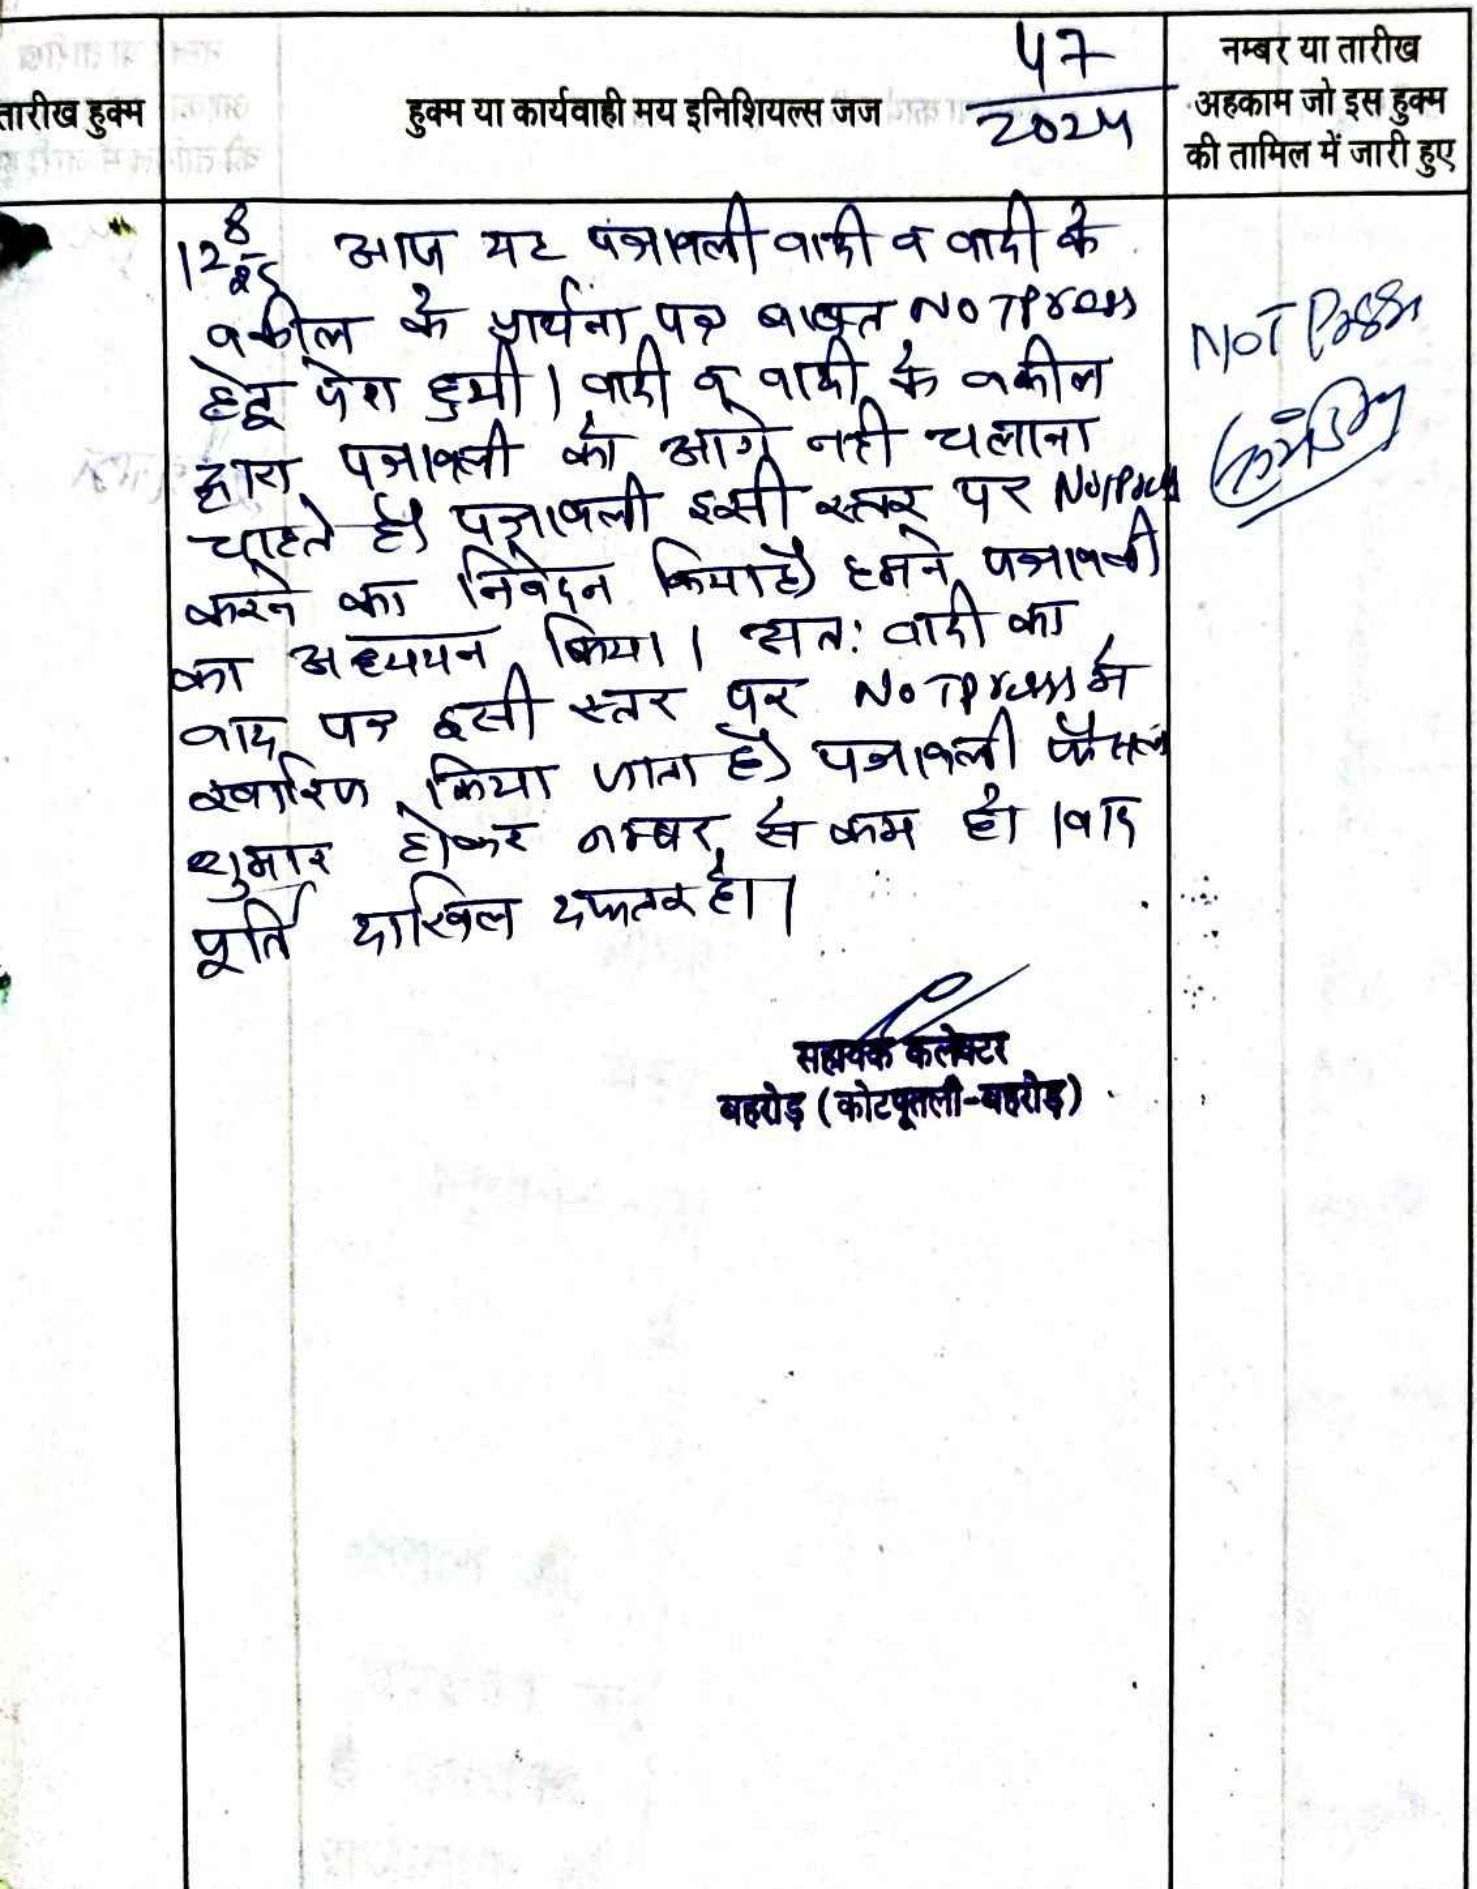 तारीख हुक्म
हुक्म या कार्यवाही मय इनिशियल्स जज
47
2024
नम्बर या तारीख
अहकाम जो इस हुक्म
की तामिल में जारी हुए
12 8/25 आज यह पत्रावली वादी व वादी के
वकील के प्रार्थना पत्र बाबत NOTPress
हेतु पेश हुयी। वादी व वादी के वकील
द्वारा पत्रावली को आगे नही चलाना
चाहते है। पत्रावली इसी स्तर पर NOTPress
करने का निवेदन किया है। हमने पत्रावली
का अध्ययन किया। अतः वादी का
वाद पत्र इसी स्तर पर NOTPress में
खारिज किया जाता है। पत्रावली फैसल
शुमार होकर नम्बर से कम हो। वाद
पूर्ति दाखिल दफ्तर हो।
NOT Press
सहायक कलेक्टर
बहरोड़ (कोटपूतली-बहरोड़)